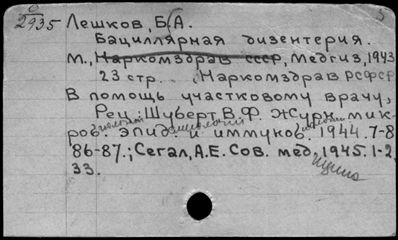 2935 Лешков, Б.А.
Бациллярная дизентерия.
М., Наркомздрав СССР, Медгиз, 1943
23 стр. Наркомздрав РСФСР
В помощь участковому врачу,
Рец.: Шуберт, В.Ф. Журн. мик-
роб. эпид. и иммуноб. 1944. 7-8
86-87.; Сегал, А.Е. Сов. мед. 1945. 1-2,
33.